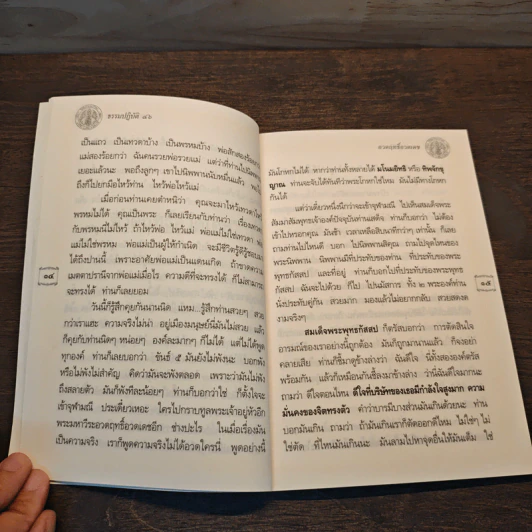 ธรรมปฏิบัติ ๔๖
เป็นแถว เป็นเทวดาบ้าง เป็นพรหมบ้าง พ่อสักสองร้อยกว่า
แม่สองร้อยกว่า ฉันคนรวยพ่อรวยแม่ แต่ว่าที่ท่านไปนิพพาน
เยอะแล้วนะ พอถึงลูกๆ เขาไปนิพพานนับหมื่นแล้ว พอไป
ถึงก็ไปยกมือไหว้ท่าน ไหว้พ่อไหว้แม่
เมื่อก่อนท่านเคยตำหนิว่า คุณจะมาไหว้เทวดาไหว้
พรหมไม่ได้ คุณเป็นพระ ก็เลยเรียนกับท่านว่า เรื่องเทวดา
กับพรหมนี่ไม่ไหว้ ถ้าไหว้พ่อ ไหว้แม่ พ่อแม่ไม่ใช่เทวดา พ่อ
แม่ไม่ใช่พรหม พ่อแม่เป็นผู้ให้กำเนิด จะมีชีวิตรู้ดีรู้ชอบมา
ได้ถึงปานนี้ เพราะอาศัยพ่อแม่เป็นแดนเกิด ถ้าขาดความ
เมตตาปรานีจากพ่อแม่เมื่อไร ความดีที่จะทรงได้ ก็ไม่สามารถ
จะทรงได้ ท่านก็เลยยอม
วันนี้ก็รู้สึกคุยกันนานนิด แหม...รู้สึกท่านสวยๆ สวย
กว่าเราแฮะ ความจริงไม่น่า อยู่เมืองมนุษย์นี่มันไม่สวย แล้ว
ก็คุยกับท่านนิดๆ หน่อยๆ องค์ละมากๆ ก็ไม่ได้ แต่ไม่ได้พูด
ทุกองค์ ท่านก็เลยบอกว่า ขันธ์ ๕ มันยังไม่พังนะ บอกพัง
หรือไม่พังไม่สำคัญ คิดว่ามันจะพังตลอด เพราะว่ามันไม่พัง
ถึงสลายตัว มันก็พังทีละน้อยๆ ท่านก็บอกว่าใช่ ก็ตั้งใจจะ
เข้าจุฬามณี ประเดี๋ยวเหอะ ใครไปกราบทูลพระเจ้าอยู่หัวอีก
พระมหาวีระอวดฤทธิ์อวดเดชอีก ช่างปะไร ในเมื่อเรื่องมัน
เป็นความจริง เราก็พูดความจริงไม่ได้อวดใครนี่ พูดอย่างนี้
๑๔
อวดฤทธิ์อวดเดช
มันโกหกไม่ได้ หากว่าท่านทั้งหลายได้ มโนมยิทธิ หรือ ทิพจักขุ
ญาณ ท่านจะจับได้ทันทีว่าพระโกหกใช่ไหม มันไม่มีทางโกหก
กันได้
แต่ว่าเดี๋ยวหนึ่งนึกว่าจะเข้าจุฬามณี ไปเห็นสมเด็จพระ
สัมมาสัมพุทธเจ้าองค์ปัจจุบันท่านเสด็จ ท่านก็บอกว่า ไม่ต้อง
เข้าไปหรอกคุณ มันช้า เวลาเหลือสิบนาทีกว่าๆ เท่านั้น ก็เลย
ถามท่านไปไหนดี บอก ไปนิพพานสิคุณ ถามไปจุดไหนของ
พระนิพพาน นิพพานมีที่ประทับของท่าน ที่ประทับของพระ
พุทธกัสสป และที่อยู่ ท่านก็บอกไปที่ประทับของพระพุทธ
กัสสป ฉันจะไปด้วย ก็ไป ไปนมัสการ ทั้ง ๒ พระองค์ท่าน
นั่งประทับคู่กัน สวยมาก มองแล้วไม่อยากกลับ สวยสดงด
งามจริงๆ
สมเด็จพระพุทธกัสสป ก็ตรัสบอกว่า การตัดสินใจ
อารมณ์ของเราอย่างนี้ถูกต้อง มันก็ถูกมานานแล้ว กิจอย่า
คลายเสีย ท่านก็ชี้มาดูข้างล่างว่า ฉันดีใจ นี่ทั้งสององค์ตรัส
พร้อมกัน แล้วก็เหมือนกันชี้ลงมาข้างล่าง ว่านี่ฉันดีใจมากนะ
ถามว่า ดีใจตอนไหน ดีใจที่บริษัทของเธอมีกำลังใจสูงมาก ความ
มั่นคงของจิตทรงตัว คำว่าบารมีบางส่วนมันเกินด้วยนะ ท่าน
บอกมันเกิน ถามว่า ถ้ามันเกินเราก็ตัดออกดีไหม ไม่ใช่ๆ ไม่
ใช่ตัด ที่ไหนมันเกินนะ มันลามไปหาจุดอื่นให้มันเต็ม ใช่
๑๕